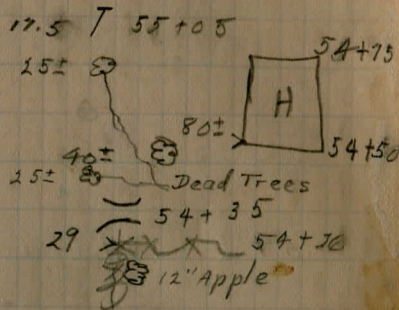 17.5 T 55+05
25± 54+75
H
80±
54+50
40±
25± Dead Trees
54+35
29 54+
12" Apple